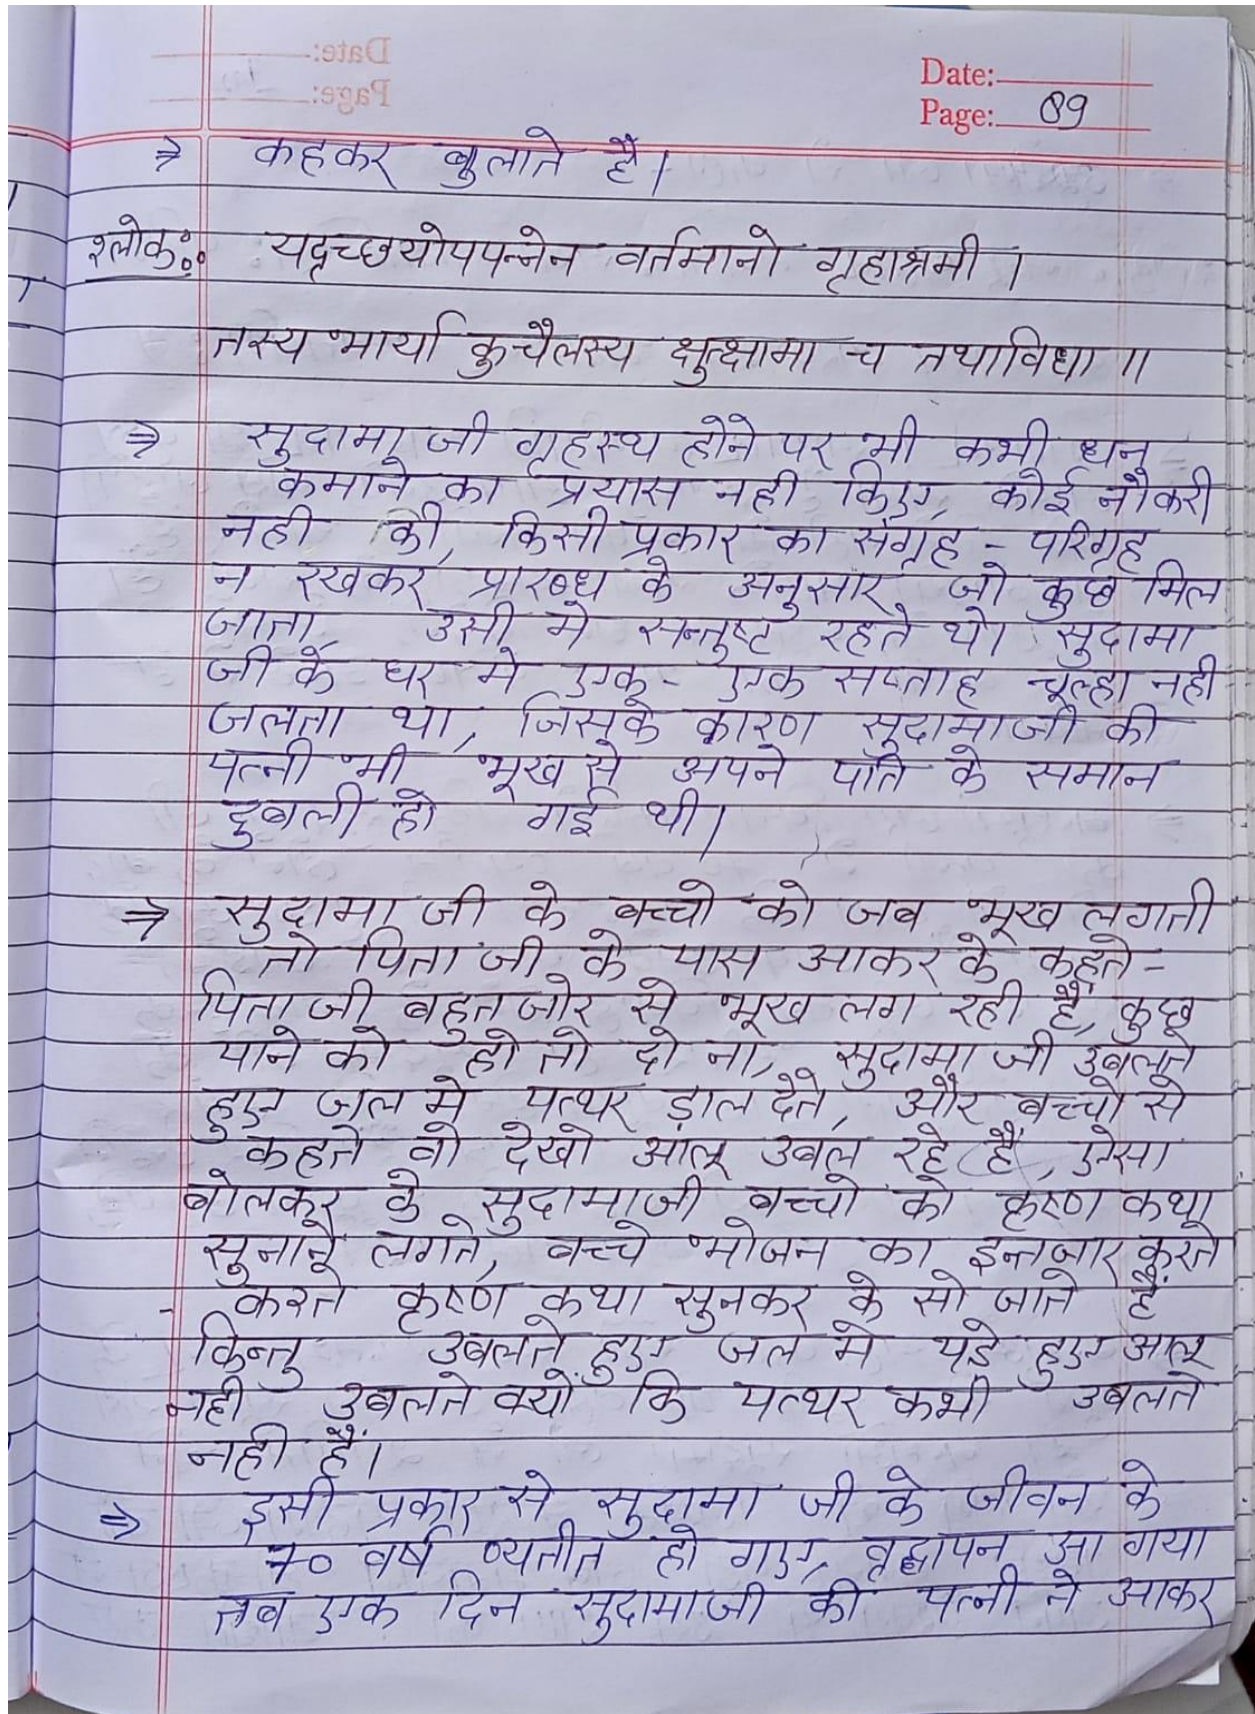 Date:
Page: 89
⇒ कहकर बुलाते है।
श्लोकः यदृच्छयोपपन्नेन वर्तमानो गृहाश्रमी।
तस्य भार्या कुचैलस्य क्षुत्क्षामा च तथाविधा॥
⇒ सुदामा जी गृहस्थ होने पर भी कभी धन
कमाने का प्रयास नही किए, कोई नौकरी
नही की, किसी प्रकार का संग्रह - परिग्रह
न रखकर, प्रारब्ध के अनुसार जो कुछ मिल
जाता उसी मे सन्तुष्ट रहते थे। सुदामा
जी के घर मे एक- एक सप्ताह चूल्हा नही
जलता था, जिसके कारण सुदामाजी की
पत्नी भी भूख से अपने पति के समान
दुबली हो गई थी।
⇒ सुदामा जी के बच्चो को जब भूख लगती
तो पिता जी के पास आकर के कहते-
पिता जी बहुत जोर से भूख लग रही है, कुछ
याने को हो तो दो ना, सुदामा जी उबलते
हुए जल मे पत्थर ड़ाल देते, और बच्चो से
कहते वो देखो आलू उबल रहे हैं, ऐसा
बोलकर के सुदामाजी बच्चो को कृष्ण कथा
सुनाने लगते, बच्चे भोजन का इन्तजार करते
- करते कृष्ण कथा सुनकर के सो जाते हैं
किन्तु उबलते हुए जल मे पड़े हुए आलू
नही उबलते क्यों कि पत्थर कभी उबलते
नही हैं।
⇒ इसी प्रकार से सुदामा जी के जीवन के
70 वर्ष व्यतीत हो गए, वृद्धापन आ गया
तब एक दिन सुदामाजी की पत्नी ने आकर